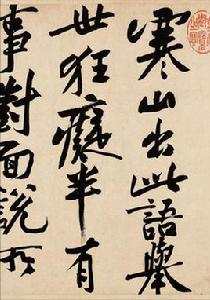 寒山出此語舉
世狂癡半有
事對面說所